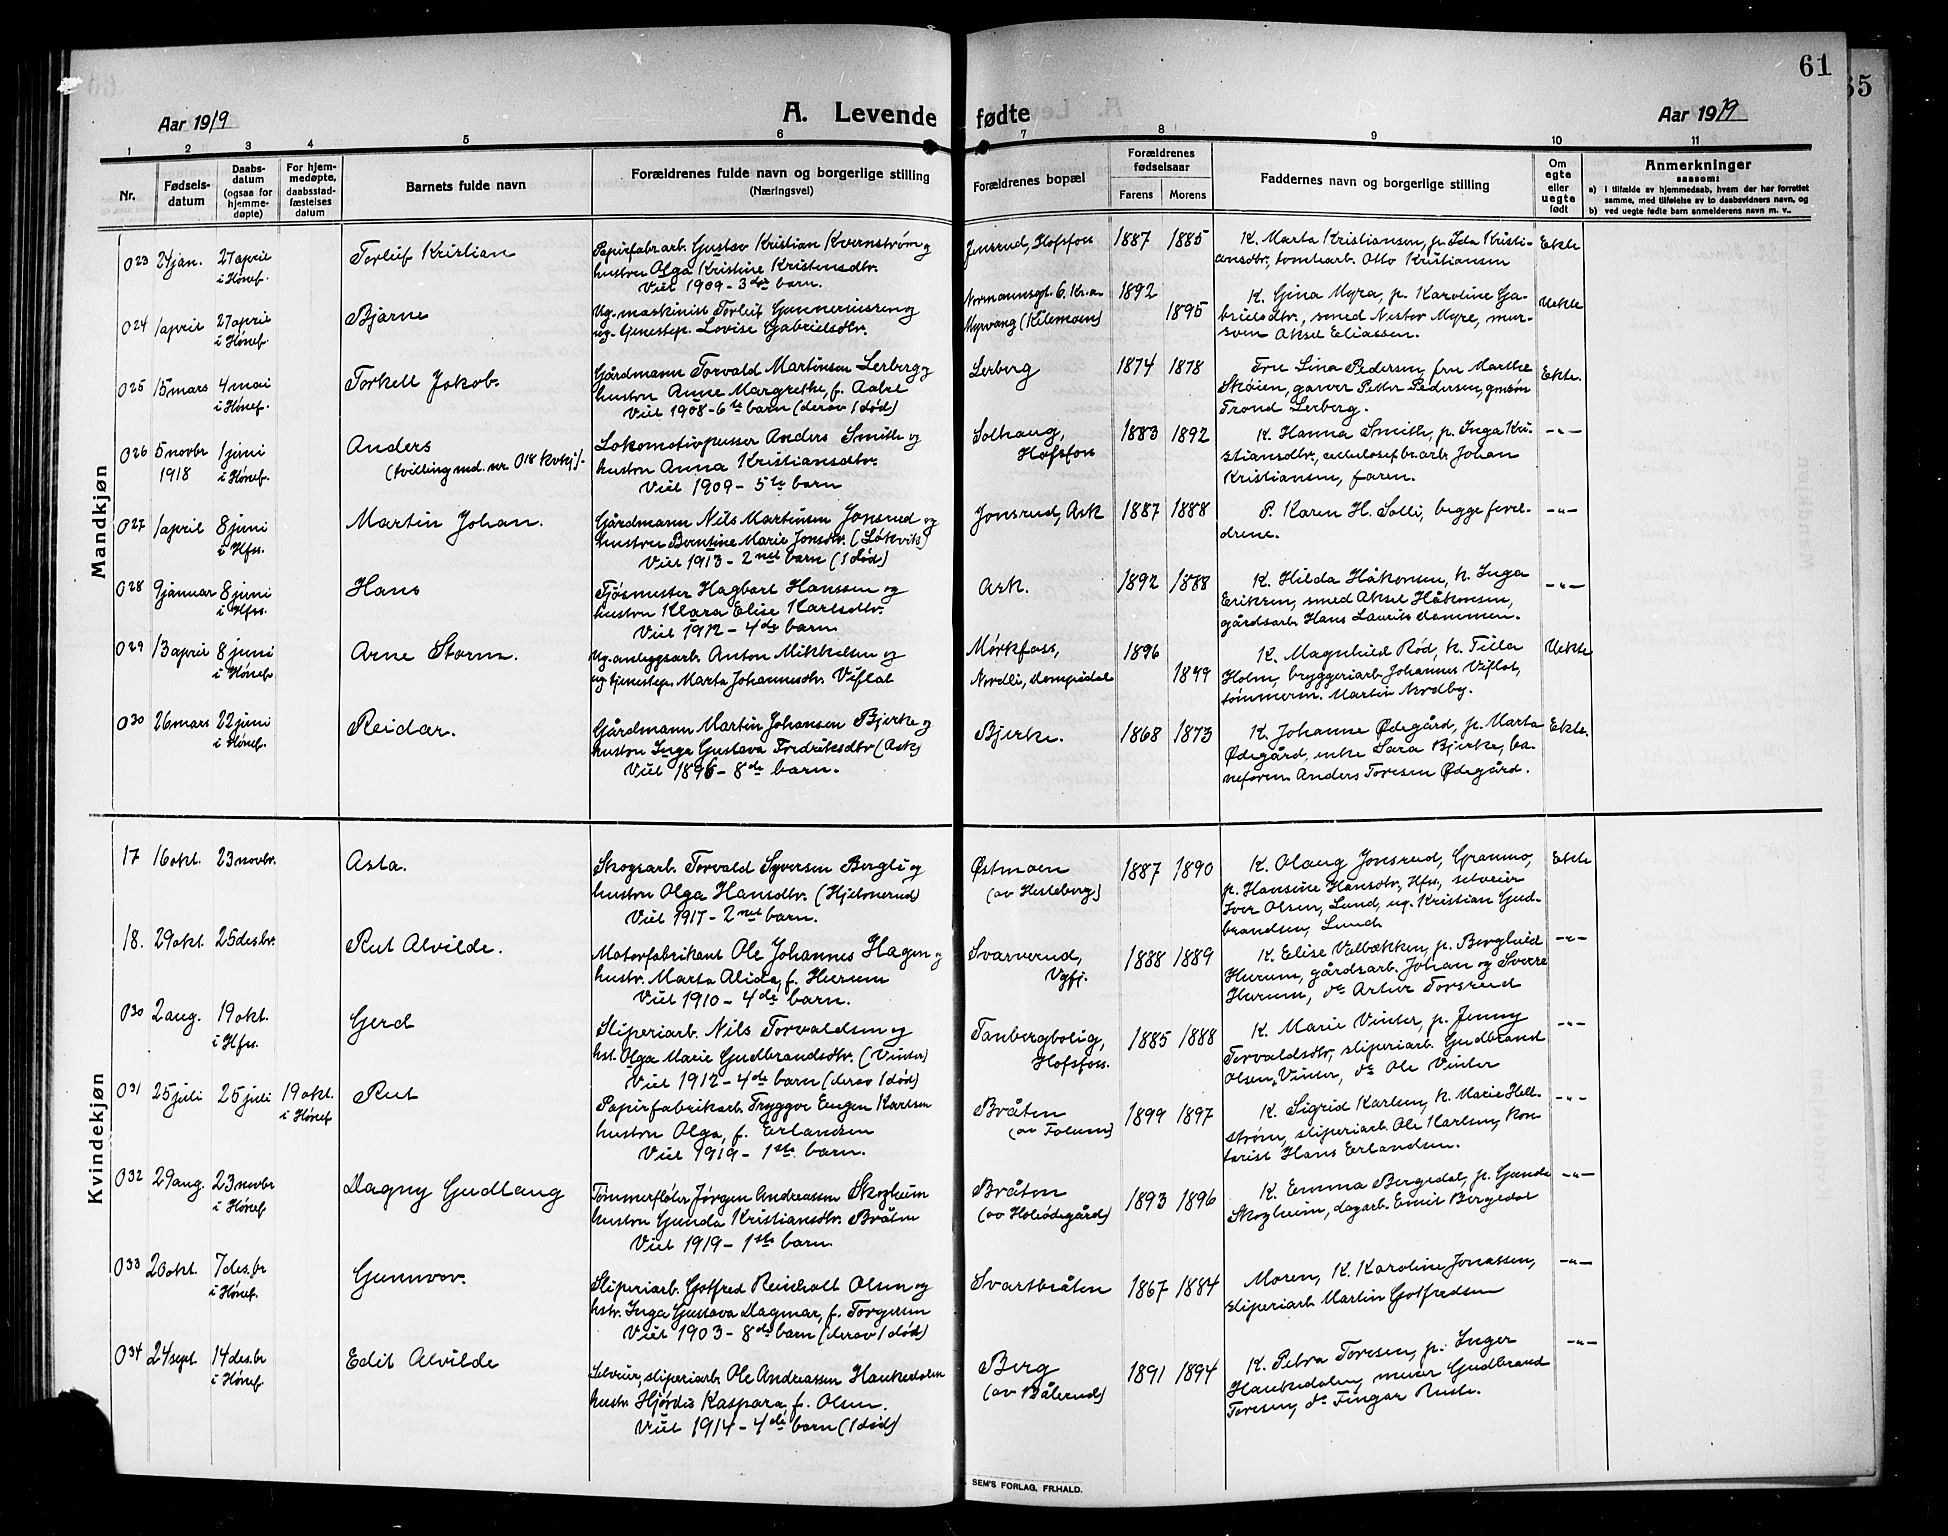 61
65
Aar 1919
A. Levende fødte
Aar 1919
1 2 3 4 5 6 7 8 9 10 11
Nr.
Fødsels-
datum
Daabs-
datum
(ogsaa for
hjemme-
døpte)
For hjem-
medøpte,
daabsstad-
fæstelses
datum
Barnets fulde navn
Forældrenes fulde navn og borgerlige stilling
(Næringsvei)
Forældrenes bopæl
Forældrenes
fødselsaar
Farens Morens
Faddernes navn og borgerlige stilling
Om
egte
eller
uegte
født
Anmerkninger
saasom:
a) I tilfælde av hjemmedaab, hvem der har forrettet
samme, med tilføielse av to daabsvidners navn, og
b) ved uegte fødte barn anmelderens navn m. v..
Mandkjøn
023 24 jan. 27 april Torleif Kristian Papirfabr.arb. Gustav Kristian Kvernstrøm og Jensrud, Hofsfos 1887 1885 K. Marta Kristiansen, p. Ida Kristi- Ekte
i Hønef. hustru Olga Kristine Kristensdtr. ansdtr, tomtearb. Otto Kristiansen
Viet 1909 - 3die barn.
024 1 april 27 april Bjarne Ug. maskinist Torleif Gunneriussen og Normannsgt. 6. Kr.a. 1892 K. Gina Myra, p. Karoline Ga- Uekte
i Hønef. ug. tjenestep. Lovise Gabrielsdtr. Myrvang (Kilemoen) 1895 brielsdtr., smed Nestor Myre, mur-
sven Aksel Eliassen.
025 15 mars 4 mai Torkell Jakob. Gårdmann Torvald Martinsen Lerberg og Lerberg 1874 1878 Fru Lina Pedersen, fru Marthe Ekte.
i Hønef. hustru Anne Margrethe, f. Aabel Skøien, garver Petter Pedersen, gmsøn
Viet 1908 - 6te barn (derav 1 død) Trond Lerberg.
026 5 novbr 1 juni Anders Lokomotivpusser Anders Smith og Solhaug, 1883 1892 K. Hanna Smith, p. Inga Kri- -"-
1918 i Hønef. (tvilling med nr 018 kvkj.) hustru Anna Kristiansdtr. Hofsfos stiansdtr, cellulosefabr.arb. Johan
Viet 1909 - 5te barn Kristiansen, faren.
027 1 april 8 juni Martin Johan. Gårdmann Nils Martinsen Jonsrud og Jonsrud, Ask 1887 1888 P. Karen H. Solli, begge forel- -"-
i Hfss. hustru Berntine Marie Jonsdtr. (Løkvik) drene.
Viet 1913 - 2net barn (1 død)
028 9 januar 8 juni Hans Fjøsmester Hagbart Hanssen og Ask. 1892 1888 K. Hilda Håkonsen, k. Inga -"-
i Hfss. hustru Klara Elise Karlsdtr. Eriksen, smed Aksel Håkonsen,
Viet 1912 - 4de barn. gårdsarb. Hans Laurits Dammen.
029 13 april 8 juni Arne Storm. Ug. anleggsarb. Anton Mikkelsen og Mørkfoss, 1896 K. Magnhild Rød, k. Tilla Uekte
i Hønef. ug. tjenestep. Marta Johannesdtr. Viflat Nordli, Lempidal 1899 Holm, bryggeriarb. Johannes Viflat,
tømmerm. Martin Nordby.
030 26 mars 22 juni Reidar. Gårdmann Martin Johansen Bjerke og Bjerke. 1868 1873 K. Johanne Ødegård, p. Marta Ekte.
i Hønef. hustru Inga Gustava Fredriksdtr (Ask) Ødegård, enke Sara Bjerke, ba-
Viet 1896 - 8de barn. neform. Anders Toresen Ødegård.
Kvindekjøn
17 16 okt. 23 novbr. Asta. Skogsarb. Torvald Syversen Bergli og Østmoen 1887 1890 K. Olaug Jonsrud, Granmo, Ekte
hustru Olga Hansdtr. (Hjelmerud) (av Hesleberg) p. Hansine Hansdtr, Hfss, selveier
Viet 1917 - 2net barn. Iver Olsen, Lund, ug. Kristian Gud-
brandsen, Lund.
18. 29 okt. 25 desbr. Rut Alvilde. Motorfabrikant Ole Johannes Hagen og Svarverud, 1888 1889 K. Elise Velbækken, p. Borghild -"-
hustr. Marta Alida, f. Hurum Vgfj. Hurum, gårdsarb. Johan og Sverre
Viet 1910 - 4de barn. Hurum, do Artur Torsrud
030 2 aug. 19 okt. Gerd Sliperiarb. Nils Torvaldsen og Tanbergbolig, 1885 1888 K. Marie Vinter, p. Jenny -"-
i Hfss. hst. Olga Marie Gudbrandsdtr. (Vinter) Hofsfoss. Torvaldsdtr, sliperiarb. Gudbrand
Viet 1912 - 4de barn (derav 1 død) Olsen Vinter, do Ole Vinter
031 25 juli 25 juli 19 okt. Rut Papirfabrikarb. Tryggve Eugen Karlsen Bråten 1899 1897 K. Sigrid Karlsen, k. Marie Hell- -"-
i Hønef hustru Olga, f. Erlandsen (av Folum) strøm, sliperiarb. Ole Karlsen, kon-
Viet 1919 - 1ste barn. torist Hans Erlandsen.
032 29 aug. 23 novbr Dagny Gudlaug Tømmerfløter Jørgen Andreassen Skogheim Bråten 1893 1896 K. Emma Bergedal, p. Gunda -"-
i Hønef. hustru Gunda Kristiansdtr. Bråten (av Holeødegård) Skogheim, dagarb. Emil Bergedal
Viet 1919 - 1ste barn.
033 20 okt. 7 des.br Gunnvor. Sliperiarb. Gotfred Reinholt Olsen og Svartbråten 1867 1884 Moren, K. Karoline Jonassen, -"-
i Hønef. hstr. Inga Gustava Dagmar, f. Torgersen sliperiarb Martin Gotfredsen
Viet 1903 - 8de barn (derav 1 død)
034 24 sept. 14 des.br Edit Alvilde Selveier, sliperiarb. Ole Andreassen Haukedalen Berg 1891 1894 K. Petra Toresen, p. Inger -"-
i Hønef. hustr. Hjørdis Kaspara, f. Olsen. (av Bålerud) Haukedalen, murer Gudbrand
Viet 1914 - 4de barn (1 død) Toresen, do Fingar Rusle.
SEM'S FORLAG, FR.HALD.